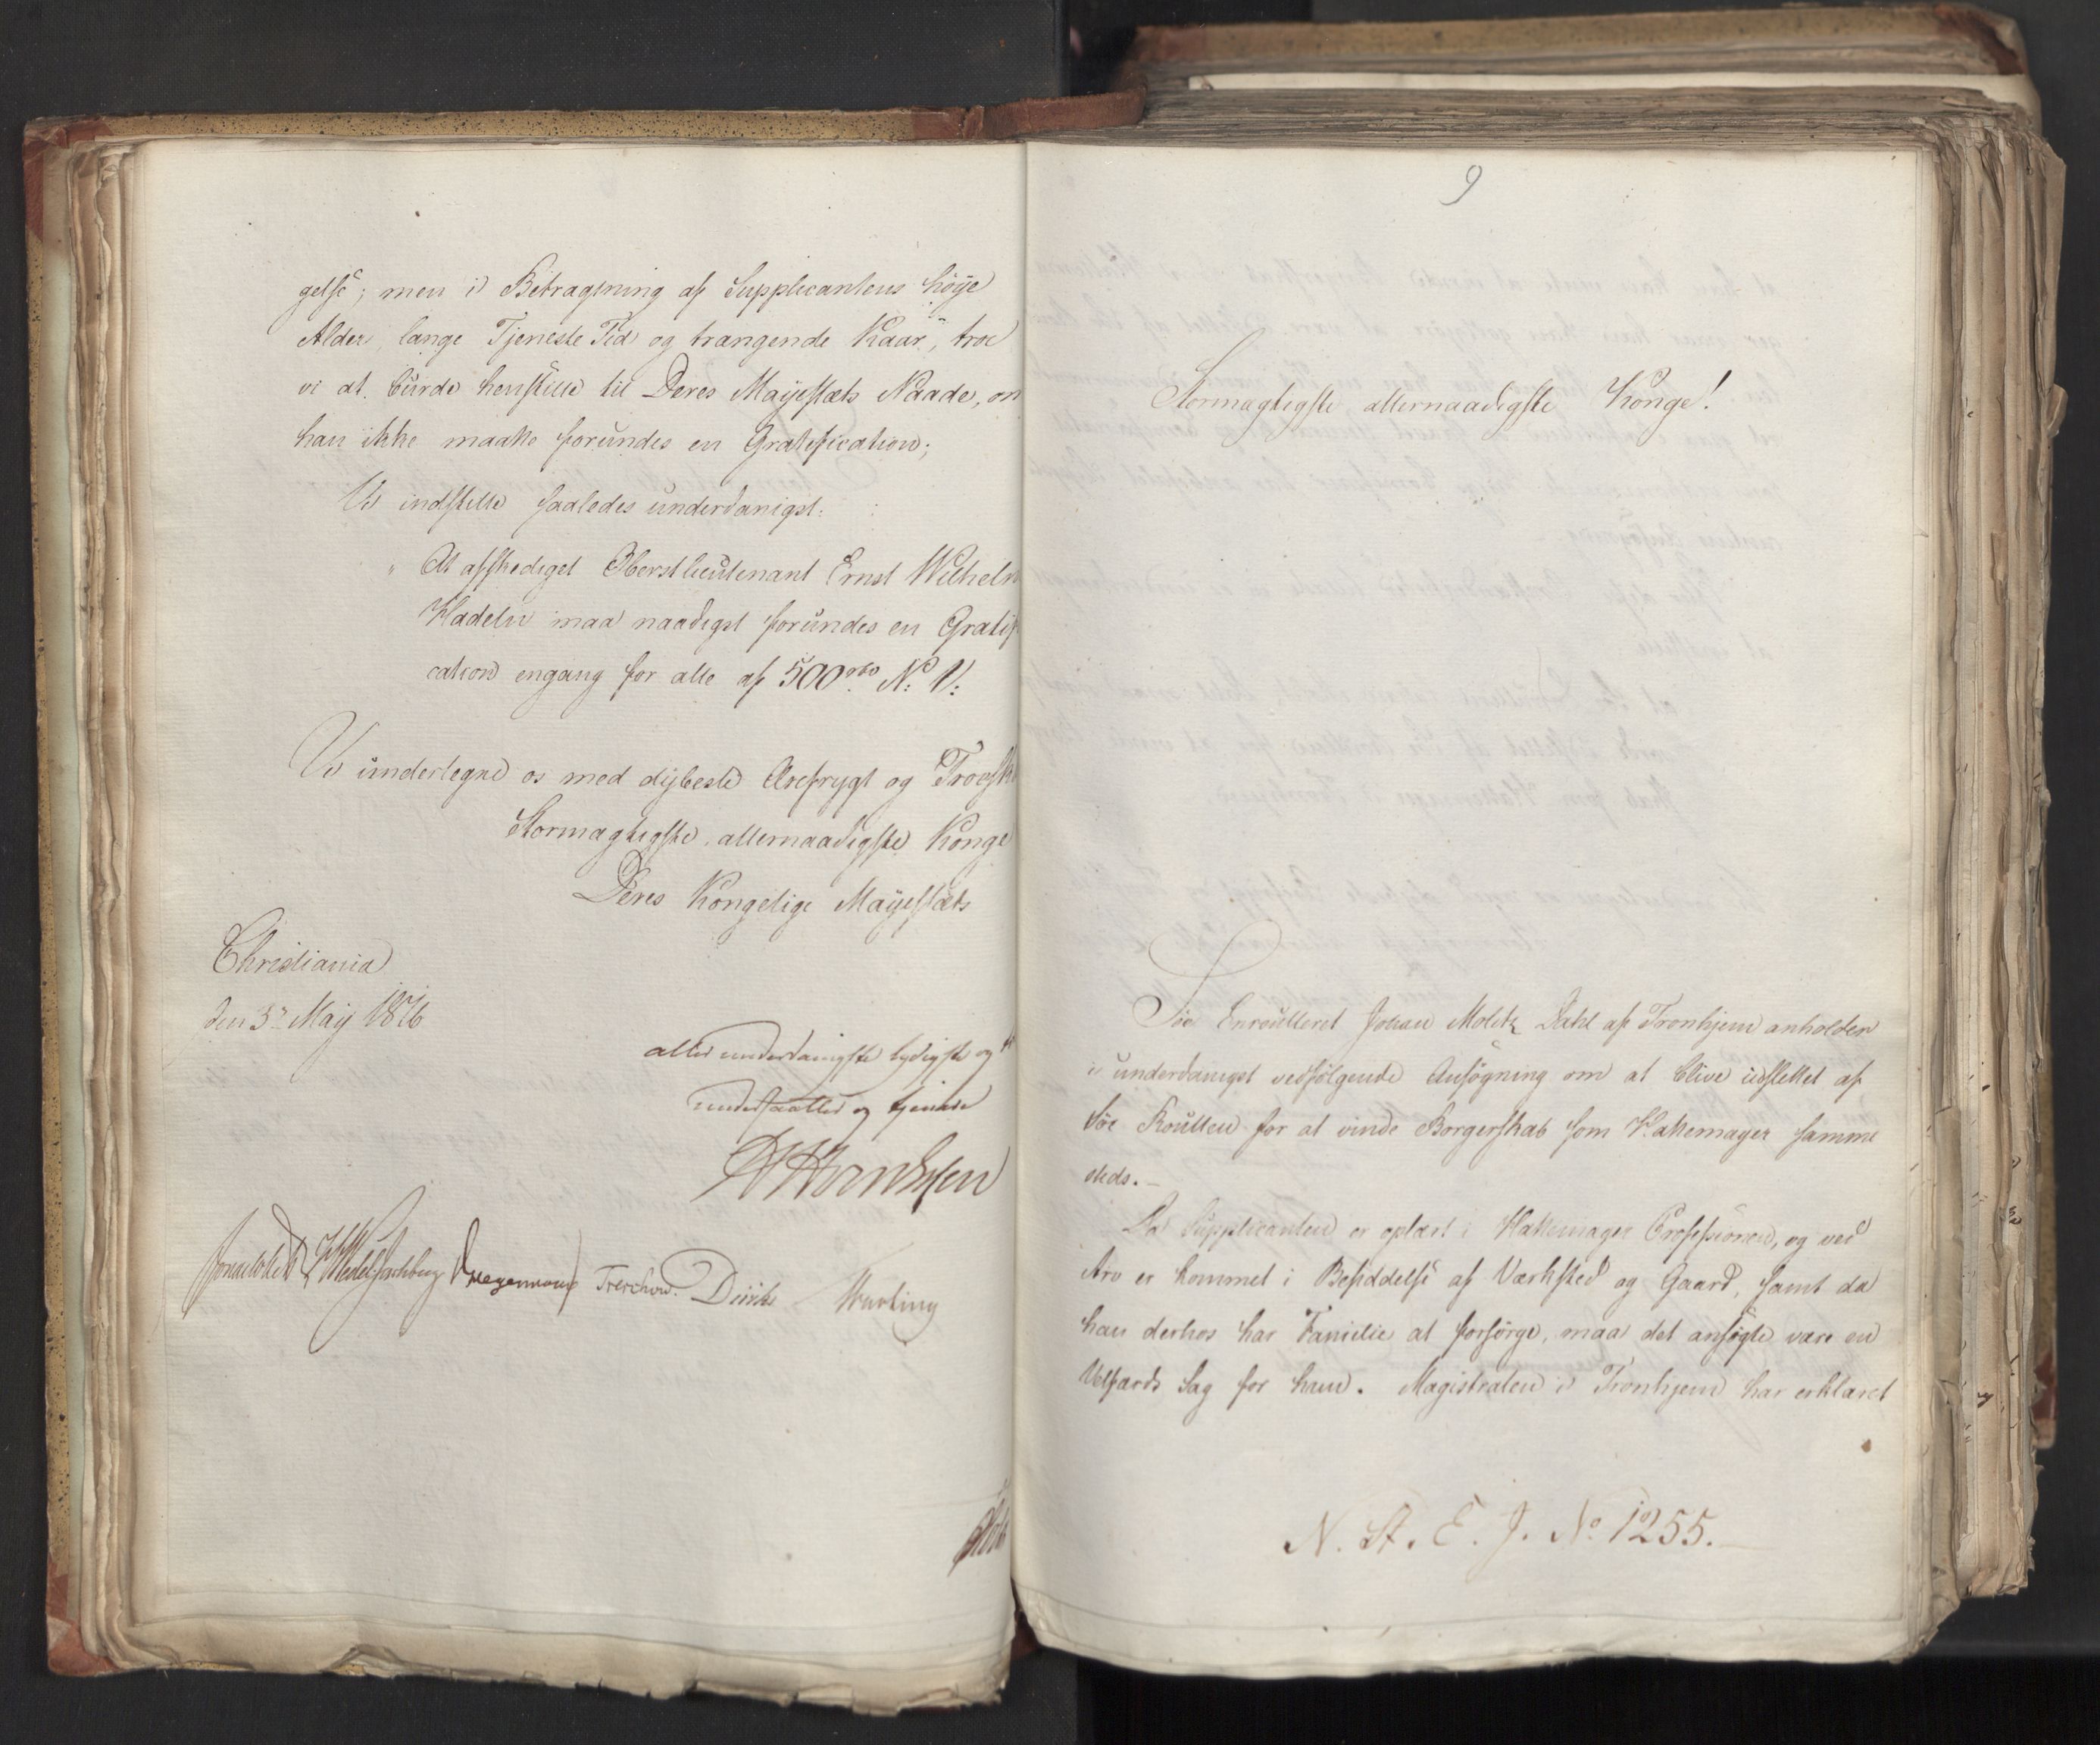 gelse; men i Betragtning af Supplicantens høye
Alder, lange Tjeneste Tid og trangende Kaar, troe
vi at burde henstille til Deres Majestæts Naade, om
han ikke maatte forundes en Gratification;
Vi indstille saaledes underdanigst:
" At afskediget Oberstlieutenant Ernst Wilhelm
Hadeln maa naadigst forundes en Gratifi
cation engang for alle af 500 rbd N: V:
Vi undertegne os med dybeste Ærefrygt og Troesk
Stormægtigste, allernaadigste Konge
Deres Kongelige Majestæts
Christiania
den 3 May 1816
allerunderdanigste lydigste og
undersaatter og tjenere
Sommerhielm Wedel Jarlsberg Hegermann Treschow Diriks Motzfeldt
9
Stormægtigste allernaadigste Konge!
Søe Enroulleret Johan Moletz Dahl af Tronhjem anholder
i underdanigst vedfølgende Ansøgning om at blive udslettet af
Søe Roullen for at vinde Borgerskab som Hattemager samme
steds.
Da Supplicanten er oplært i Hattemager Professionen, og ved
Arv er kommet i Besiddelse af Værksted og Gaard, samt da
han derhos har Familie at forsørge, maa det ansøgte være en
Velfærds Sag for ham. Magistraten i Tronhjem har erklæret
N. St. E. J. No. 1255.